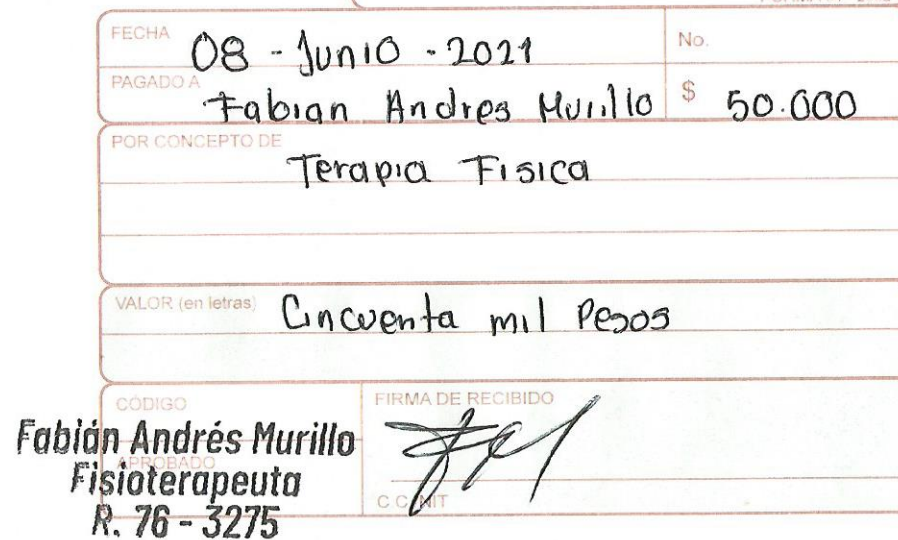 FECHA 08 - Junio - 2021 No.
PAGADO A Fabian Andres Murillo $ 50.000
POR CONCEPTO DE
Terapia Fisica
VALOR (en letras) Cincuenta mil Pesos
CÓDIGO FIRMA DE RECIBIDO
Fabián Andrés Murillo
APROBADO
Fisioterapeuta
C.C./NIT
R. 76 - 3275